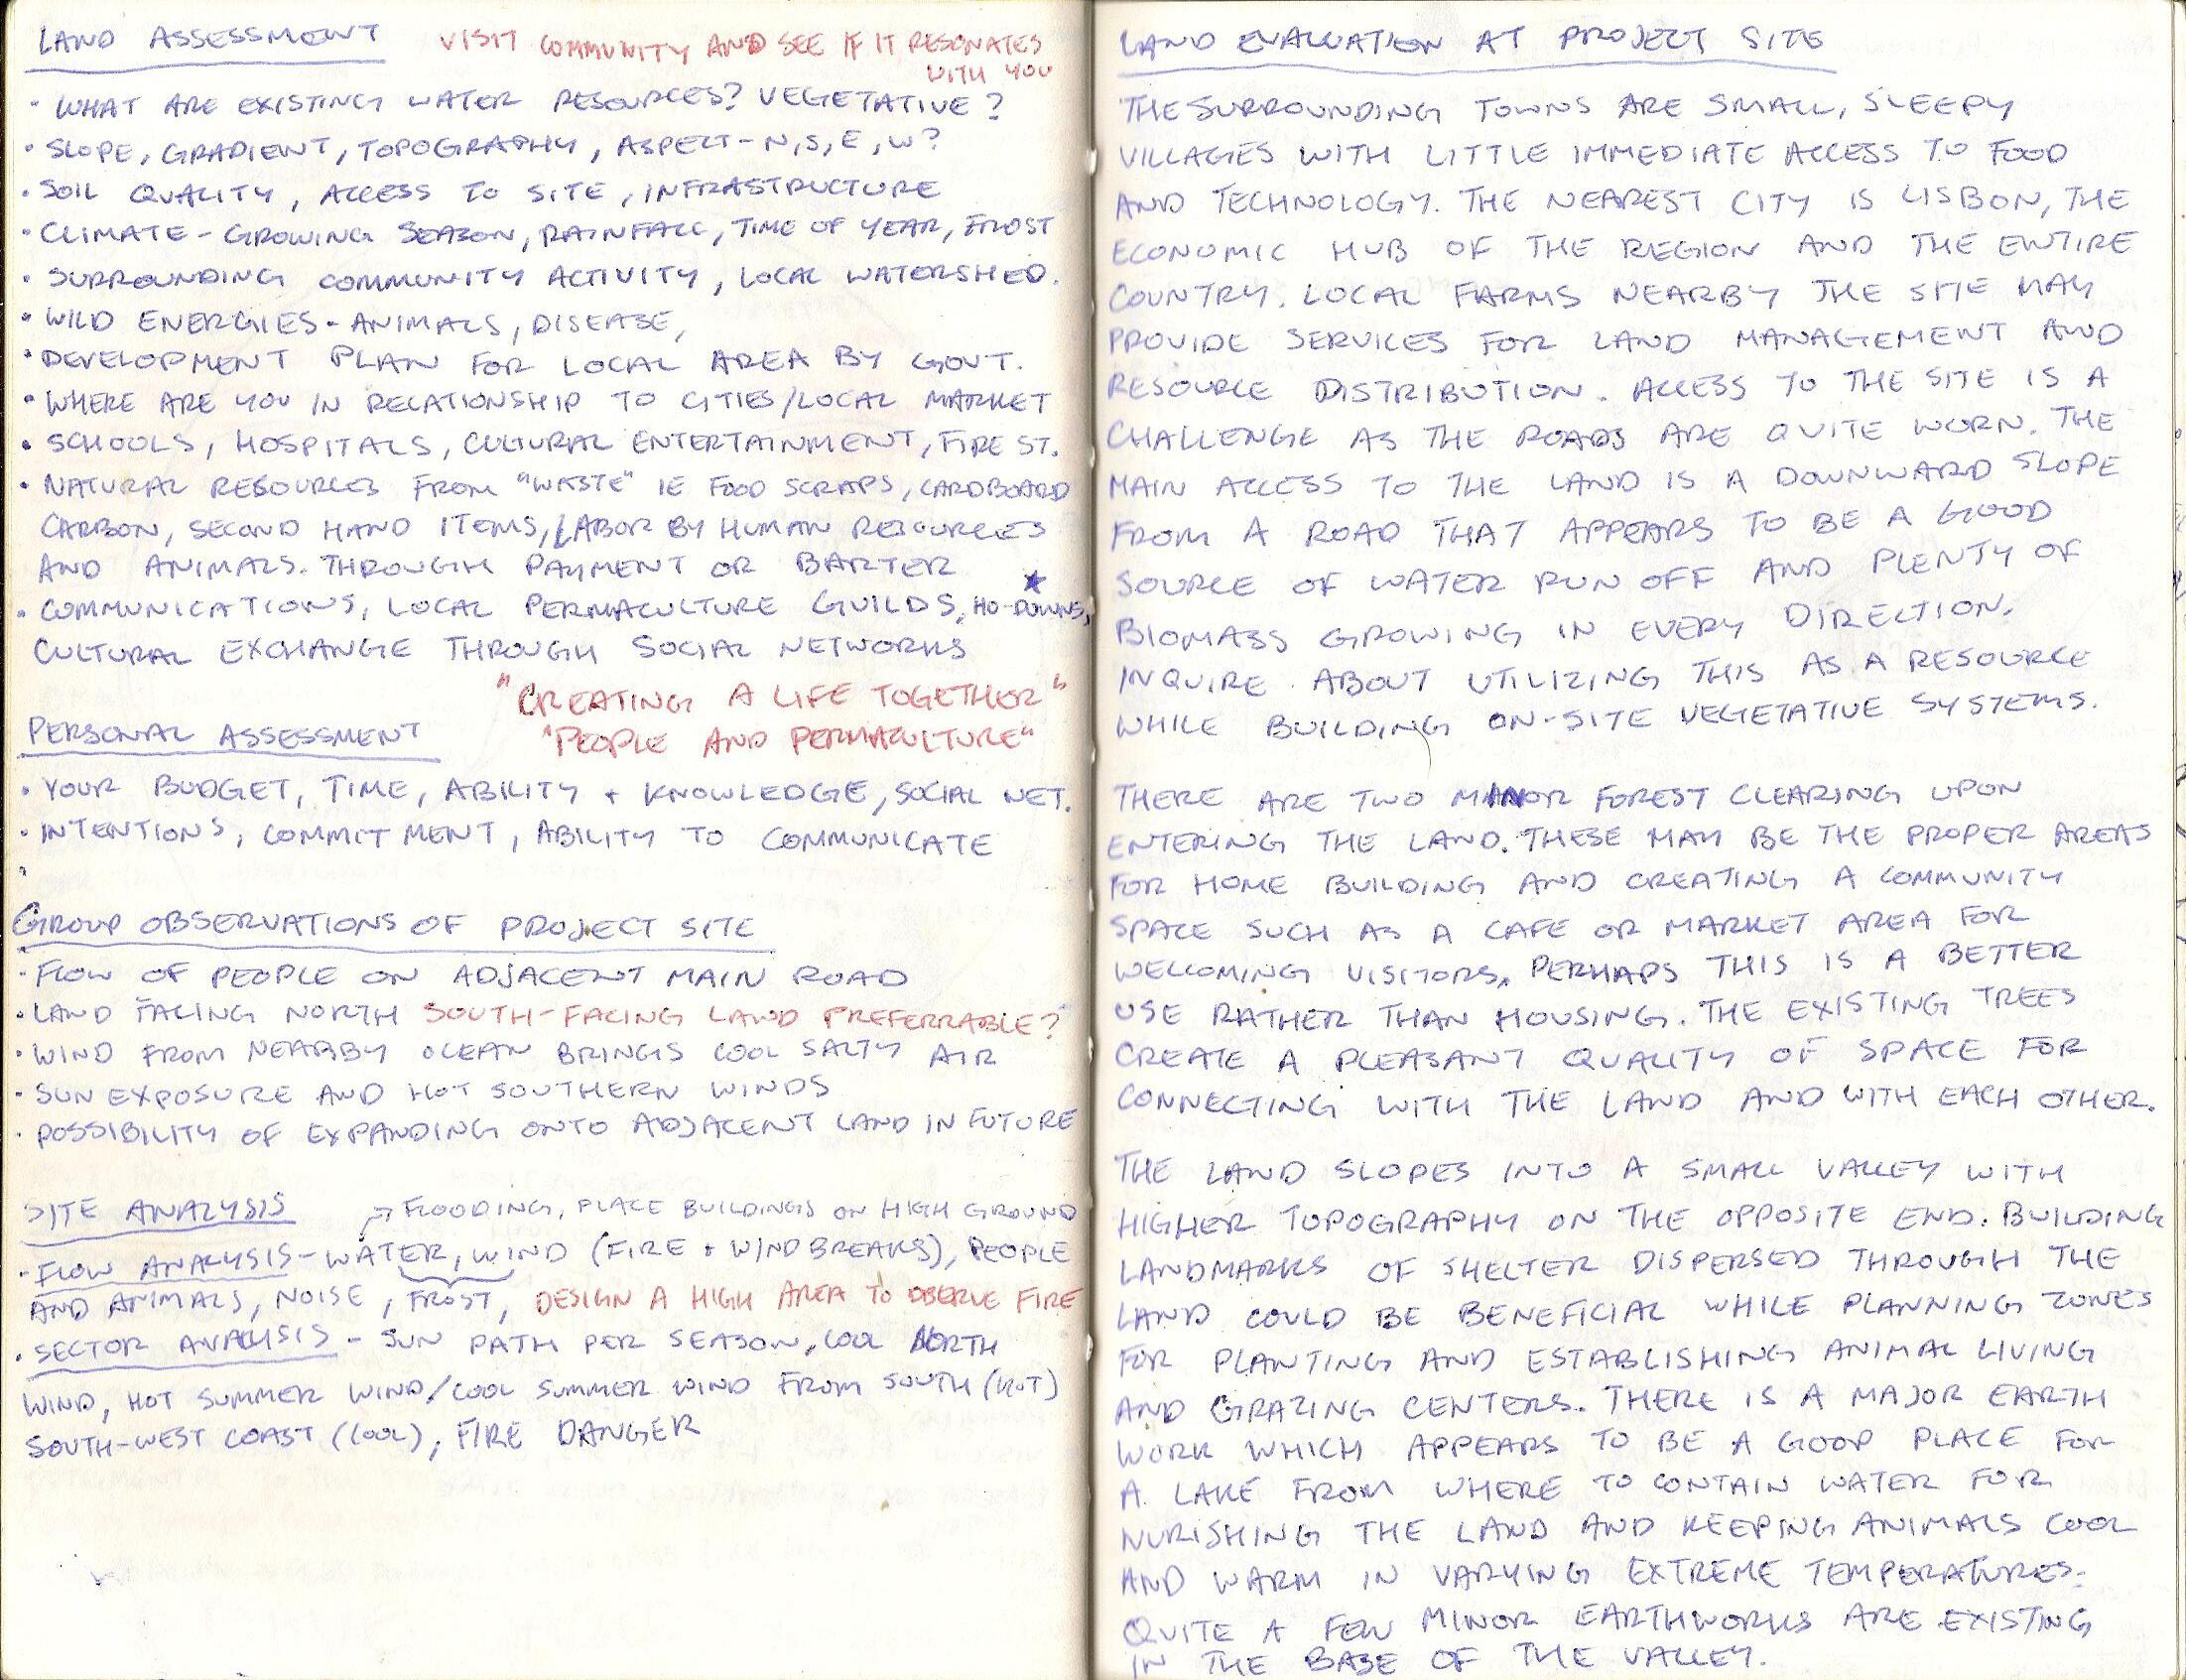 LAND ASSESSMENT
VISIT COMMUNITY AND SEE IF IT RESONATES
WITH YOU
· WHAT ARE EXISTING WATER RESOURCES? VEGETATIVE?
· SLOPE, GRADIENT, TOPOGRAPHY, ASPECT - N, S, E, W?
· SOIL QUALITY, ACCESS TO SITE, INFRASTRUCTURE
· CLIMATE - GROWING SEASON, RAINFALL, TIME OF YEAR, FROST
· SURROUNDING COMMUNITY ACTIVITY, LOCAL WATERSHED.
· WILD ENERGIES - ANIMALS, DISEASE,
· DEVELOPMENT PLAN FOR LOCAL AREA BY GOVT.
· WHERE ARE YOU IN RELATIONSHIP TO CITIES/LOCAL MARKET
· SCHOOLS, HOSPITALS, CULTURAL ENTERTAINMENT, FIRE ST.
· NATURAL RESOURCES FROM "WASTE" IE FOOD SCRAPS, CARDBOARD
CARBON, SECOND HAND ITEMS, LABOR BY HUMAN RESOURCES
AND ANIMALS. THROUGH PAYMENT OR BARTER
· COMMUNICATIONS, LOCAL PERMACULTURE GUILDS, HO-DOWNS, ★
CULTURAL EXCHANGE THROUGH SOCIAL NETWORKS
"CREATING A LIFE TOGETHER"
"PEOPLE AND PERMACULTURE"
PERSONAL ASSESSMENT
· YOUR BUDGET, TIME, ABILITY + KNOWLEDGE, SOCIAL NET.
· INTENTIONS, COMMITMENT, ABILITY TO COMMUNICATE
·
GROUP OBSERVATIONS OF PROJECT SITE
· FLOW OF PEOPLE ON ADJACENT MAIN ROAD
· LAND FACING NORTH SOUTH-FACING LAND PREFERRABLE?
· WIND FROM NEARBY OCEAN BRINGS COOL SALTY AIR
· SUN EXPOSURE AND HOT SOUTHERN WINDS
· POSSIBILITY OF EXPANDING ONTO ADJACENT LAND IN FUTURE
SITE ANALYSIS
→ FLOODING, PLACE BUILDINGS ON HIGH GROUND
· FLOW ANALYSIS - WATER, WIND (FIRE + WINDBREAKS), PEOPLE
AND ANIMALS, NOISE, FROST, DESIGN A HIGH AREA TO OBERVE FIRE
· SECTOR ANALYSIS - SUN PATH PER SEASON, COOL NORTH
WIND, HOT SUMMER WIND/COOL SUMMER WIND FROM SOUTH (HOT)
SOUTH-WEST COAST (COOL), FIRE DANGER
LAND EVALUATION AT PROJECT SITE
THE SURROUNDING TOWNS ARE SMALL, SLEEPY
VILLAGES WITH LITTLE IMMEDIATE ACCESS TO FOOD
AND TECHNOLOGY. THE NEAREST CITY IS LISBON, THE
ECONOMIC HUB OF THE REGION AND THE ENTIRE
COUNTRY. LOCAL FARMS NEARBY THE SITE MAY
PROVIDE SERVICES FOR LAND MANAGEMENT AND
RESOURCE DISTRIBUTION. ACCESS TO THE SITE IS A
CHALLENGE AS THE ROADS ARE QUITE WORN. THE
MAIN ACCESS TO THE LAND IS A DOWNWARD SLOPE
FROM A ROAD THAT APPEARS TO BE A GOOD
SOURCE OF WATER RUN OFF AND PLENTY OF
BIOMASS GROWING IN EVERY DIRECTION.
INQUIRE ABOUT UTILIZING THIS AS A RESOURCE
WHILE BUILDING ON-SITE VEGETATIVE SYSTEMS.
THERE ARE TWO FOREST CLEARING UPON
ENTERING THE LAND. THESE MAY BE THE PROPER AREAS
FOR HOME BUILDING AND CREATING A COMMUNITY
SPACE SUCH AS A CAFE OR MARKET AREA FOR
WELCOMING VISITORS. PERHAPS THIS IS A BETTER
USE RATHER THAN HOUSING. THE EXISTING TREES
CREATE A PLEASANT QUALITY OF SPACE FOR
CONNECTING WITH THE LAND AND WITH EACH OTHER.
THE LAND SLOPES INTO A SMALL VALLEY WITH
HIGHER TOPOGRAPHY ON THE OPPOSITE END. BUILDING
LANDMARKS OF SHELTER DISPERSED THROUGH THE
LAND COULD BE BENEFICIAL WHILE PLANNING ZONES
FOR PLANTING AND ESTABLISHING ANIMAL LIVING
AND GRAZING CENTERS. THERE IS A MAJOR EARTH
WORK WHICH APPEARS TO BE A GOOD PLACE FOR
A LAKE FROM WHERE TO CONTAIN WATER FOR
NURISHING THE LAND AND KEEPING ANIMALS COOL
AND WARM IN VARYING EXTREME TEMPERATURES.
QUITE A FEW MINOR EARTHWORKS ARE EXISTING
IN THE BASE OF THE VALLEY.